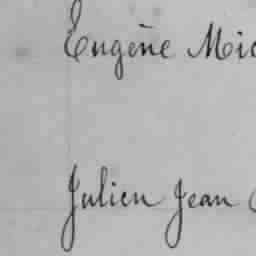 Eugène Mic
Julien Jean